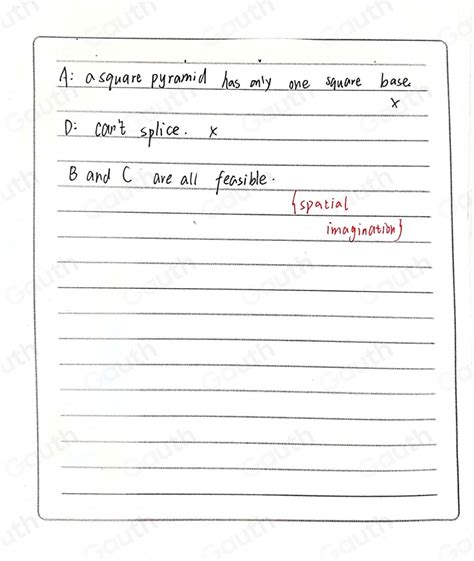 A: a square pyramid has only one square base.
x
D: can't splice. x
B and C are all feasible.
{spatial
imagination}